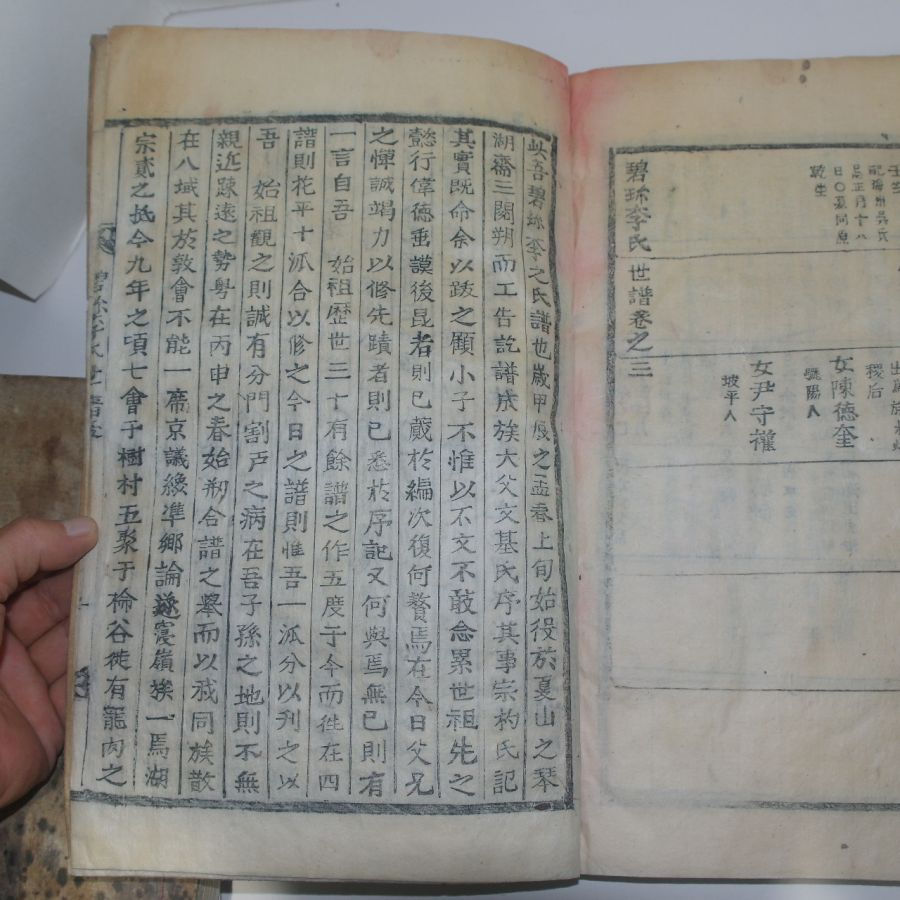 配海州吳氏
忌正月十八
日〇墓同原
碧珍李氏世譜卷之三
稷后
女陳德奎
驪陽人
女尹守權
坡平人
此吾碧珍李之氏譜也歲甲辰之孟春上旬始役於夏山之琴
湖齋三閱朔而工告訖譜成族大父文基氏序其事宗杓氏記
其實旣命余以跋之顧小子不惟以不文不敢念累世祖先之
懿行偉德垂謨後昆者則已蕆於編次復何贅焉在今日父兄
之憚誠竭力以修先蹟者則已悉於序記又何與焉無已則有
一言自吾 始祖歷世三十有餘譜之作五度于今而徃在四
譜則花平十派合以修之今日之譜則惟吾一派分以刋之以
吾 始祖觀之則誠有分門割戶之病在吾子孫之地則不無
親近疎遠之勢粤在丙申之春始刱合譜之擧而以我同族散
在八域其於敦會不能一席京議纔準鄕論遂寢嶺族一焉湖
宗貳之抵今九年之頃七會于樹村五聚于棆谷徒有寵肉之
碧珍李氏世譜跋